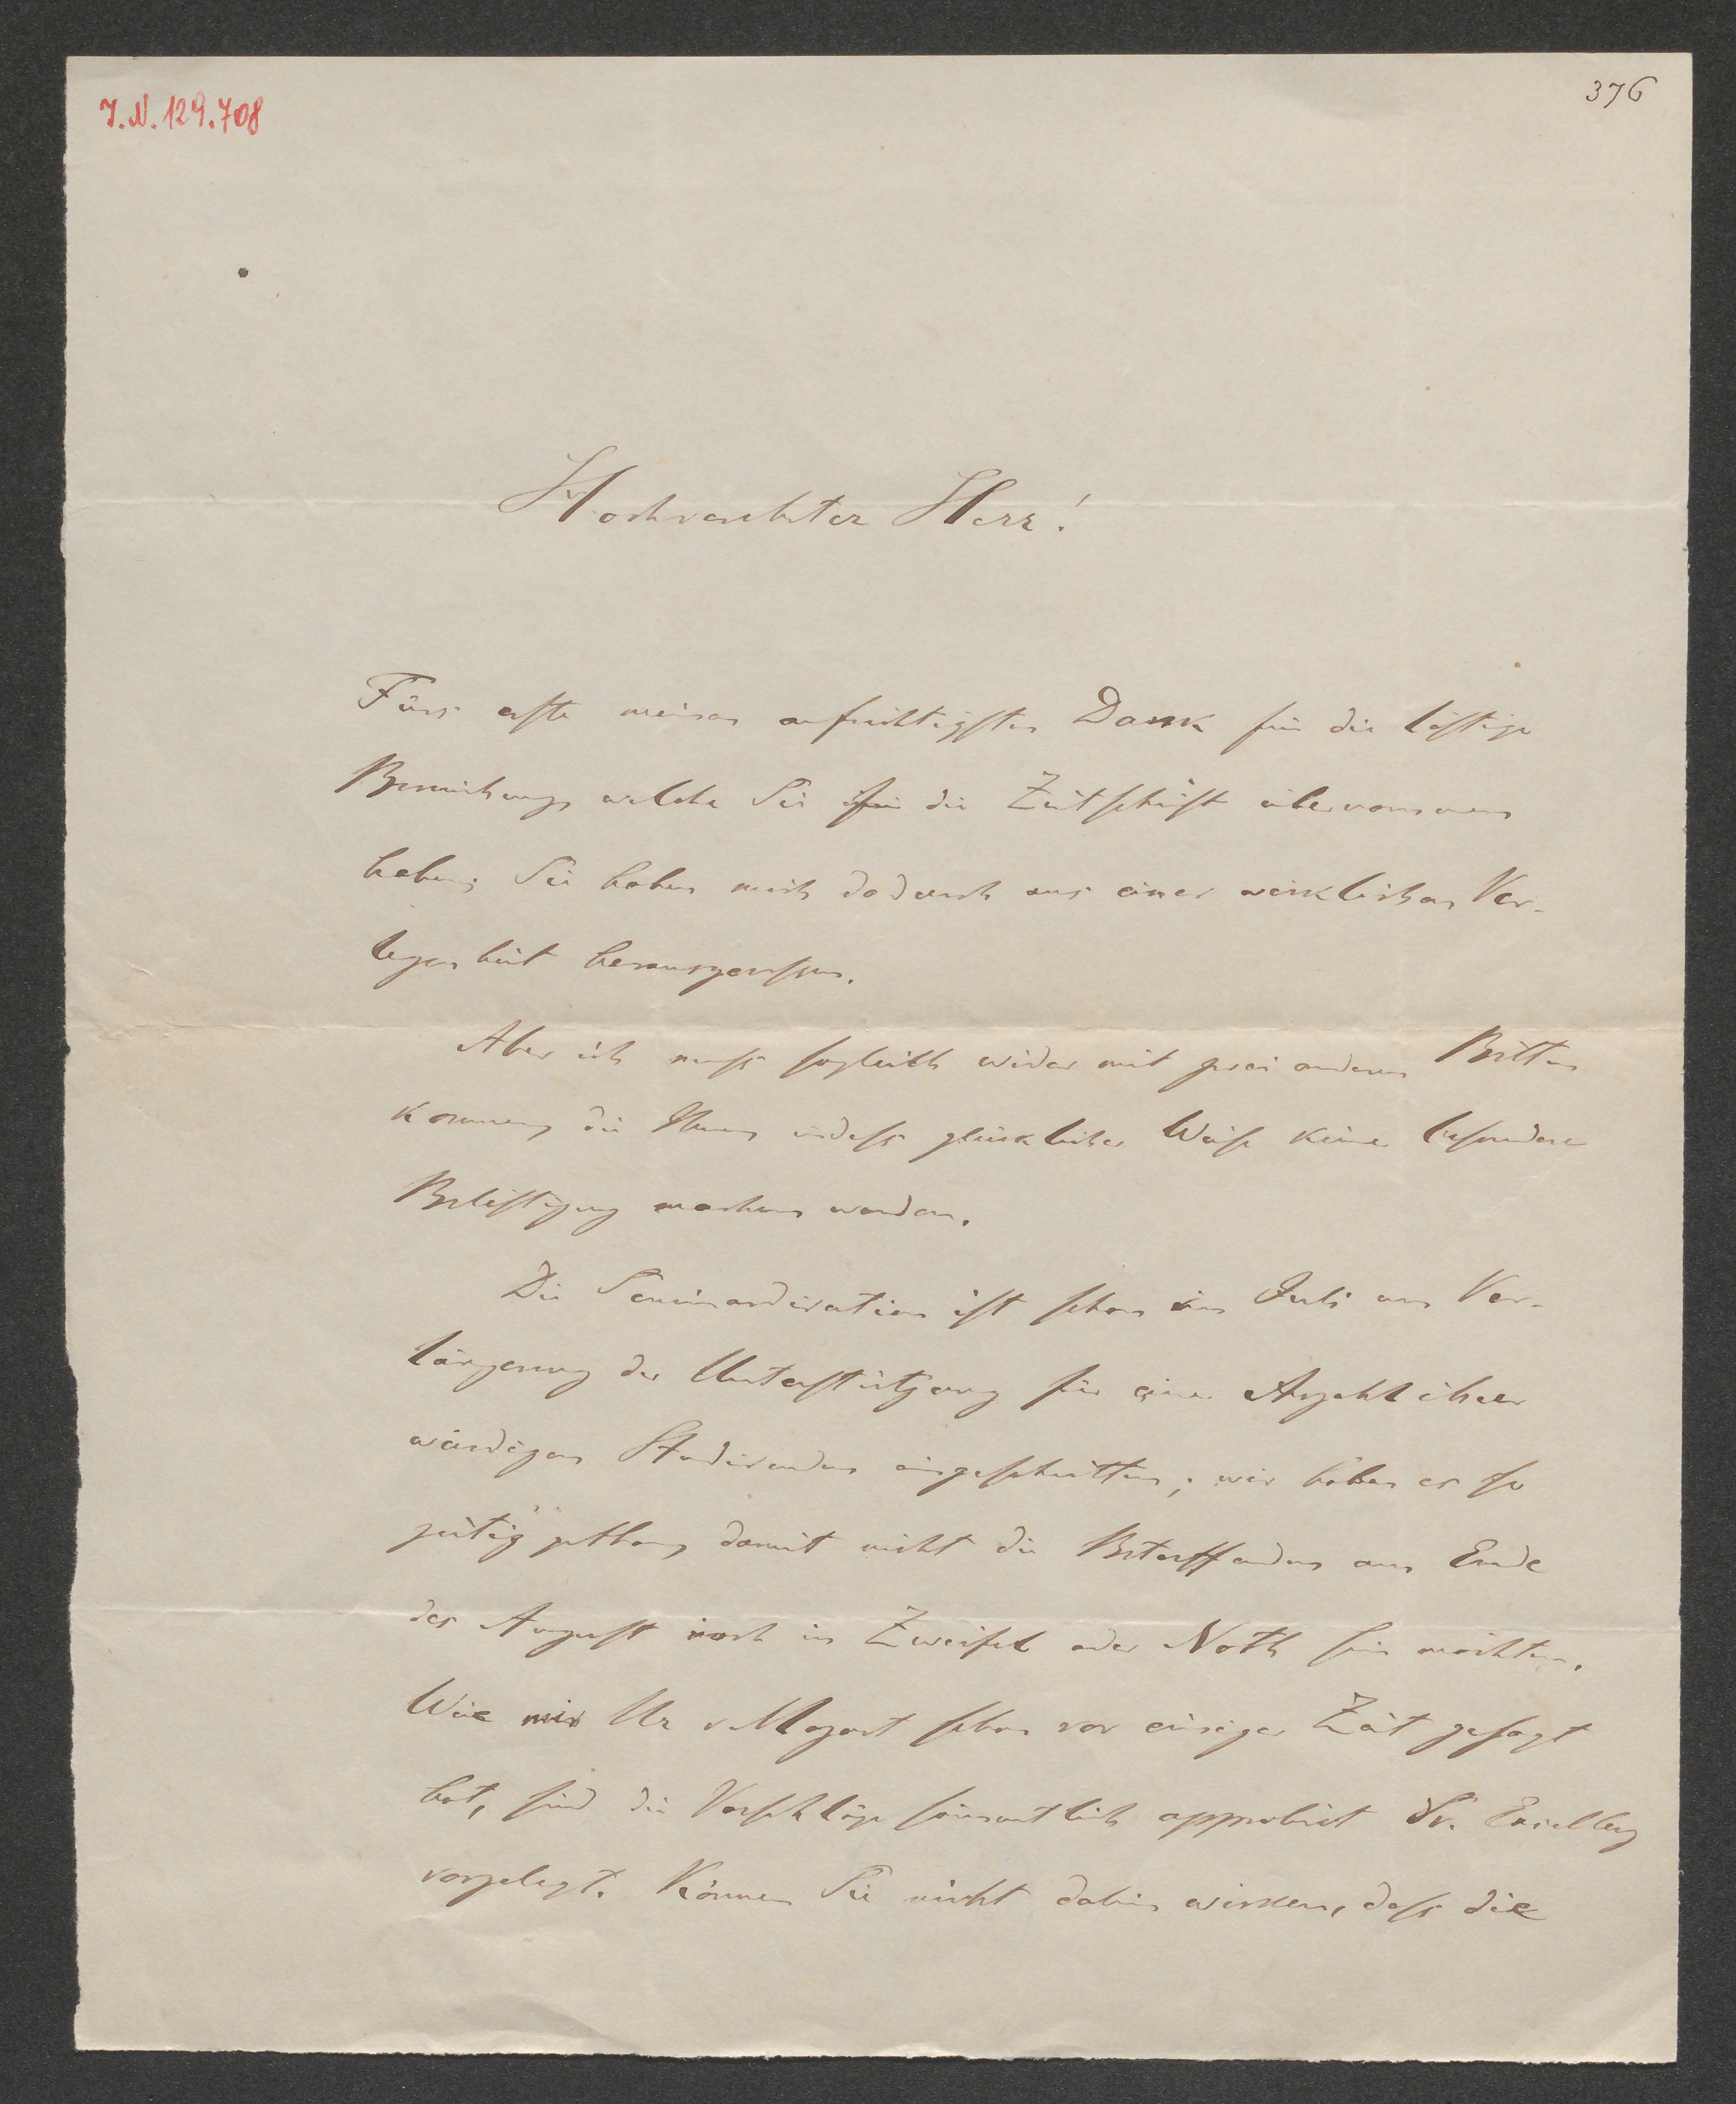 J.N. 129.708
376
Hochverehrter Herr!
Fürs erste meinen aufrichtigsten Dank für die lästige
Bemühung, welche Sie für die Zeitschrift übernommen
haben; Sie haben mich dadurch aus einer wirklichen Ver-
legenheit herausgerissen.
Aber ich muss sogleich wider mit zwei anderen Bitten
kommen, die Ihnen indess glücklicher Weise keine besondere
Belästigung machen werden.
Die Seminardirection ist schon im Juli um Ver-
längerung der Unterstützung für eine Anzahl ihrer
würdigen Studirenden eingeschritten; wir haben es so
zeitig gethan, damit nicht die Betreffenden am Ende
des August noch in Zweifel oder Noth sein möchten.
Wie mir Hr v Mozart schon vor einiger Zeit gesagt
hat, sind die Vorschläge sämmtlich approbirt Sr. Excellenz
vorgelegt. Können Sie nicht dahin wirken, dass die